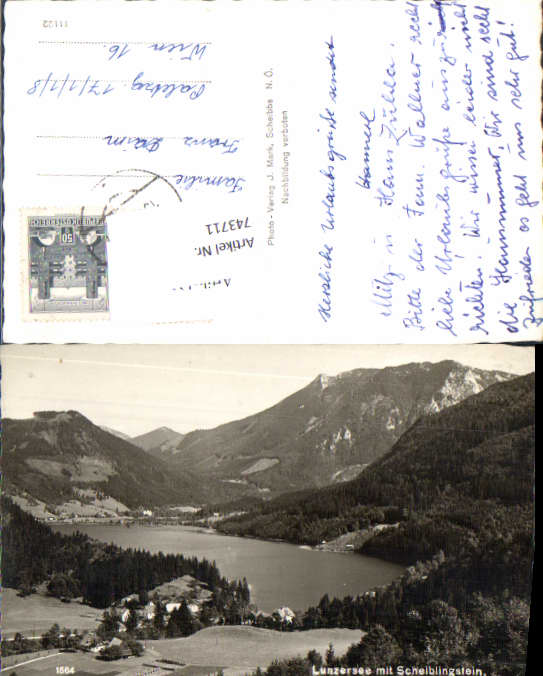 Herzliche Urlaubsgrüße sendet
Hannerl
Mitzi u Hans Zulka.
Bitte der Fam. Wallner recht
liebe Urlaubsgrüße auszu
richten. Wir wissen leider nicht
die Hausnummer. Wir sind sehr
zufrieden es geht uns sehr gut!
Photo-Verlag J. Mark, Scheibbs N. Ö.
Nachbildung verboten
Artikel Nr.
743711
REPUBLIK ÖSTERREICH
50
Familie
Franz
17/1/1/8
Wien 16.
11122
1564
Lunzersee mit Scheiblingstein.